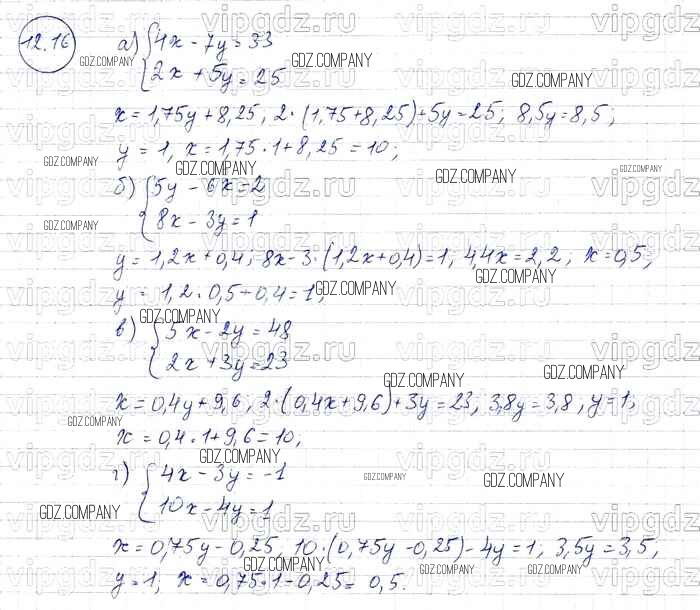 12.16 а) {4x - 7y = 33
{2x + 5y = 25
x = 1,75y + 8,25, 2·(1,75 + 8,25) + 5y = 25; 8,5y = 8,5;
y = 1, x = 1,75·1 + 8,25 = 10;
б) {5y - 6x = 2
{8x - 3y = 1
y = 1,2x + 0,4; 8x - 3·(1,2x + 0,4) = 1, 4,4x = 2,2, x = 0,5,
y = 1,2·0,5 + 0,4 = 1;
в) {5x - 2y = 48
{2x + 3y = 23
x = 0,4y + 9,6, 2·(0,4x + 9,6) + 3y = 23; 3,8y = 3,8, y = 1;
x = 0,4·1 + 9,6 = 10,
г) {4x - 3y = -1
{10x - 4y = 1
x = 0,75y - 0,25, 10·(0,75y - 0,25) - 4y = 1; 3,5y = 3,5,
y = 1, x = 0,75·1 - 0,25 = 0,5.
GDZ.COMPANY
vipgdz.ru